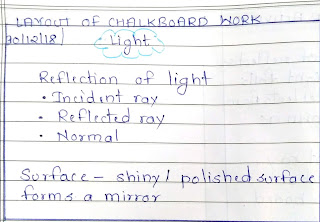 LAYOUT OF CHALKBOARD WORK
20/12/18
Light
Reflection of light
• Incident ray
• Reflected ray
• Normal
Surface - shiny / polished surface
forms a mirror